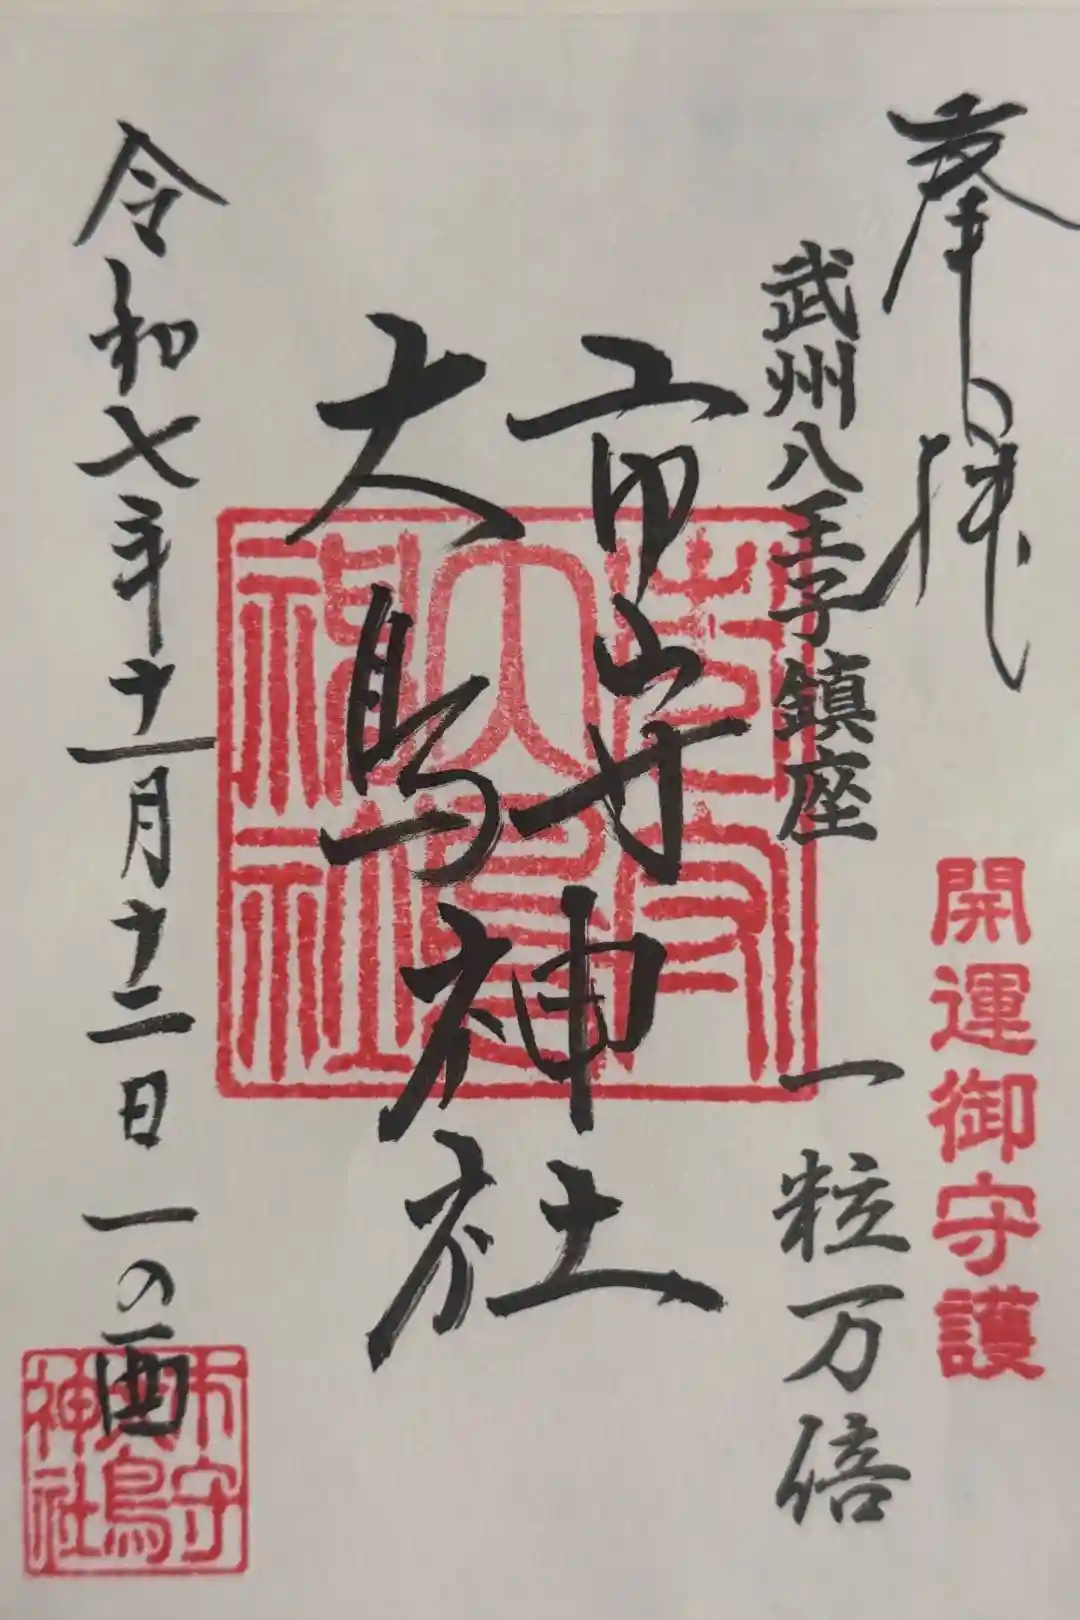 奉拝
開運御守護
武州八王子鎮座
一粒万倍
市守
大鳥
神社
令和七年十一月十二日 一の酉
市守
大鳥
神社
市守
大鳥
神社